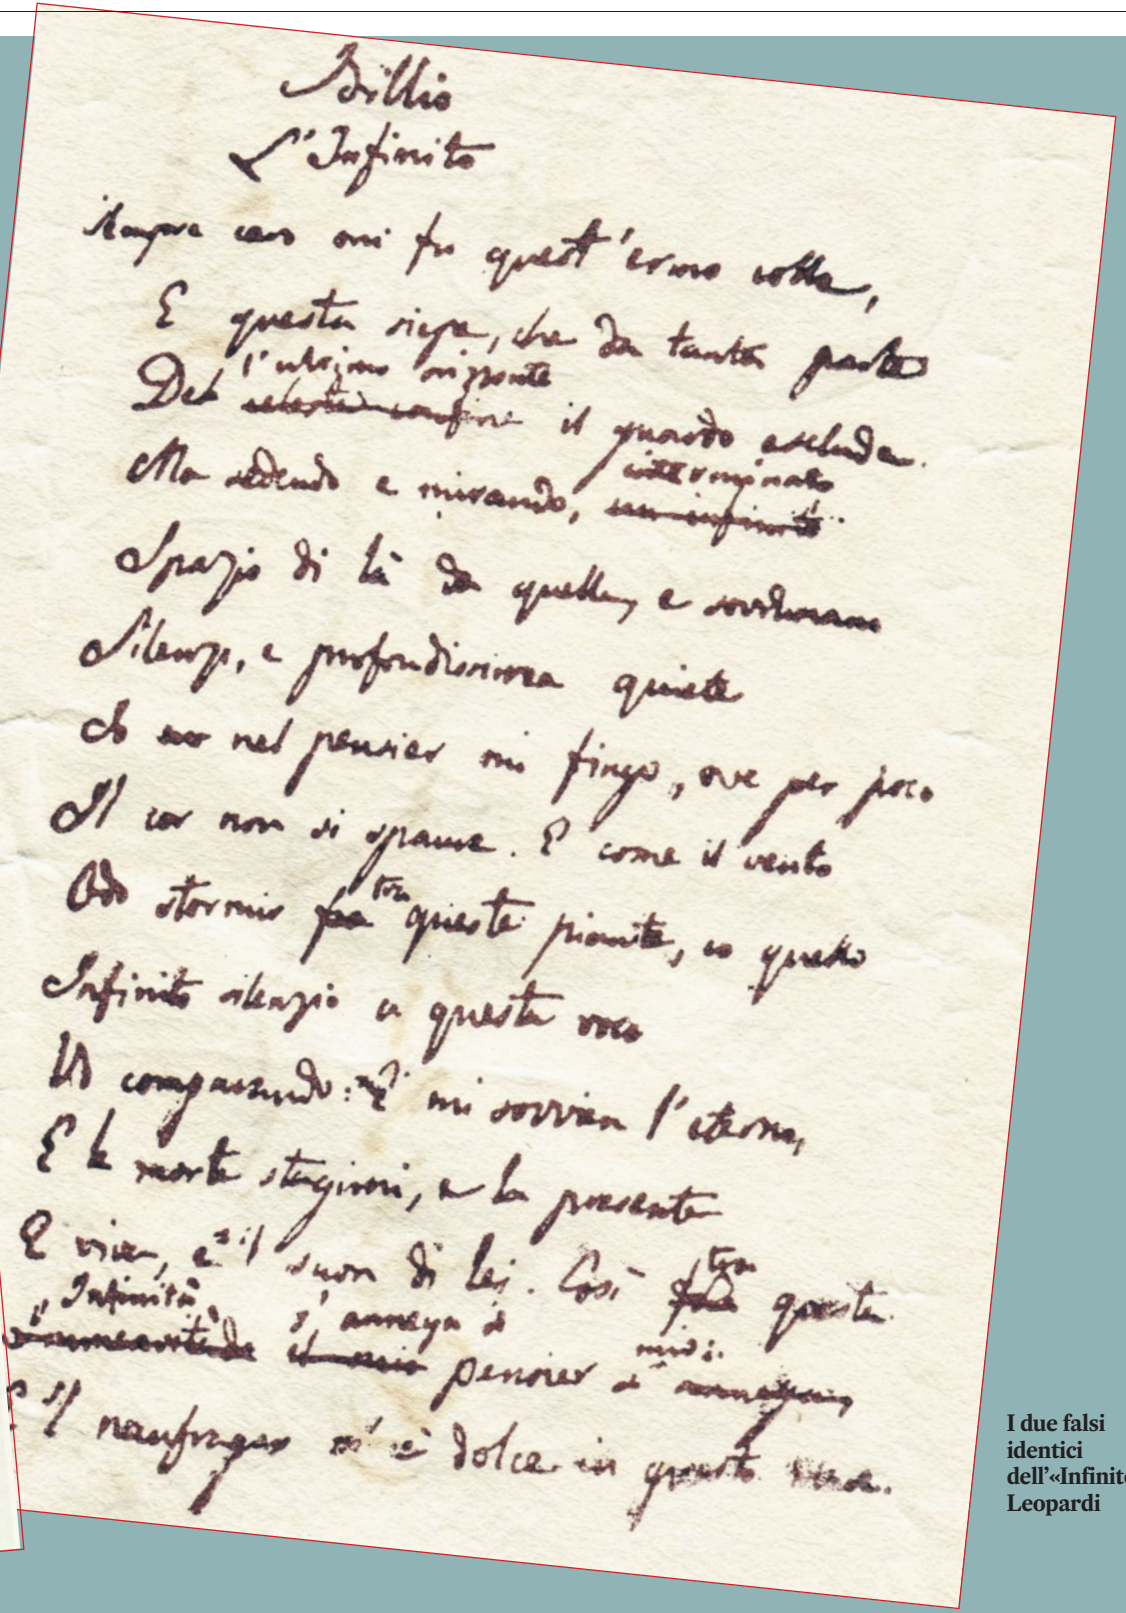 Idillio
L'Infinito
Sempre caro mi fu quest'ermo colle,
E questa siepe, che da tanta parte
l'ultimo orizzonte
Del celeste confine il guardo esclude.
interminato
Ma sedendo e mirando, un infinito
Spazio di là da quella, e sovrumani
Silenzi, e profondissima quiete
Io nel pensier mi fingo, ove per poco
Il cor non si spaura. E come il vento
tra
Odo stormir fra queste piante, io quello
Infinito silenzio a questa voce
Vo comparando: mi sovvien l'eterno,
E le morte stagioni, e la presente
E viva, e 'l suon di lei. Così tra questa
Infinità s'annega il
il mio pensier mio:
E 'l naufragar m'è dolce in questo mare.
I due falsi
identici
dell'«Infinito
Leopardi